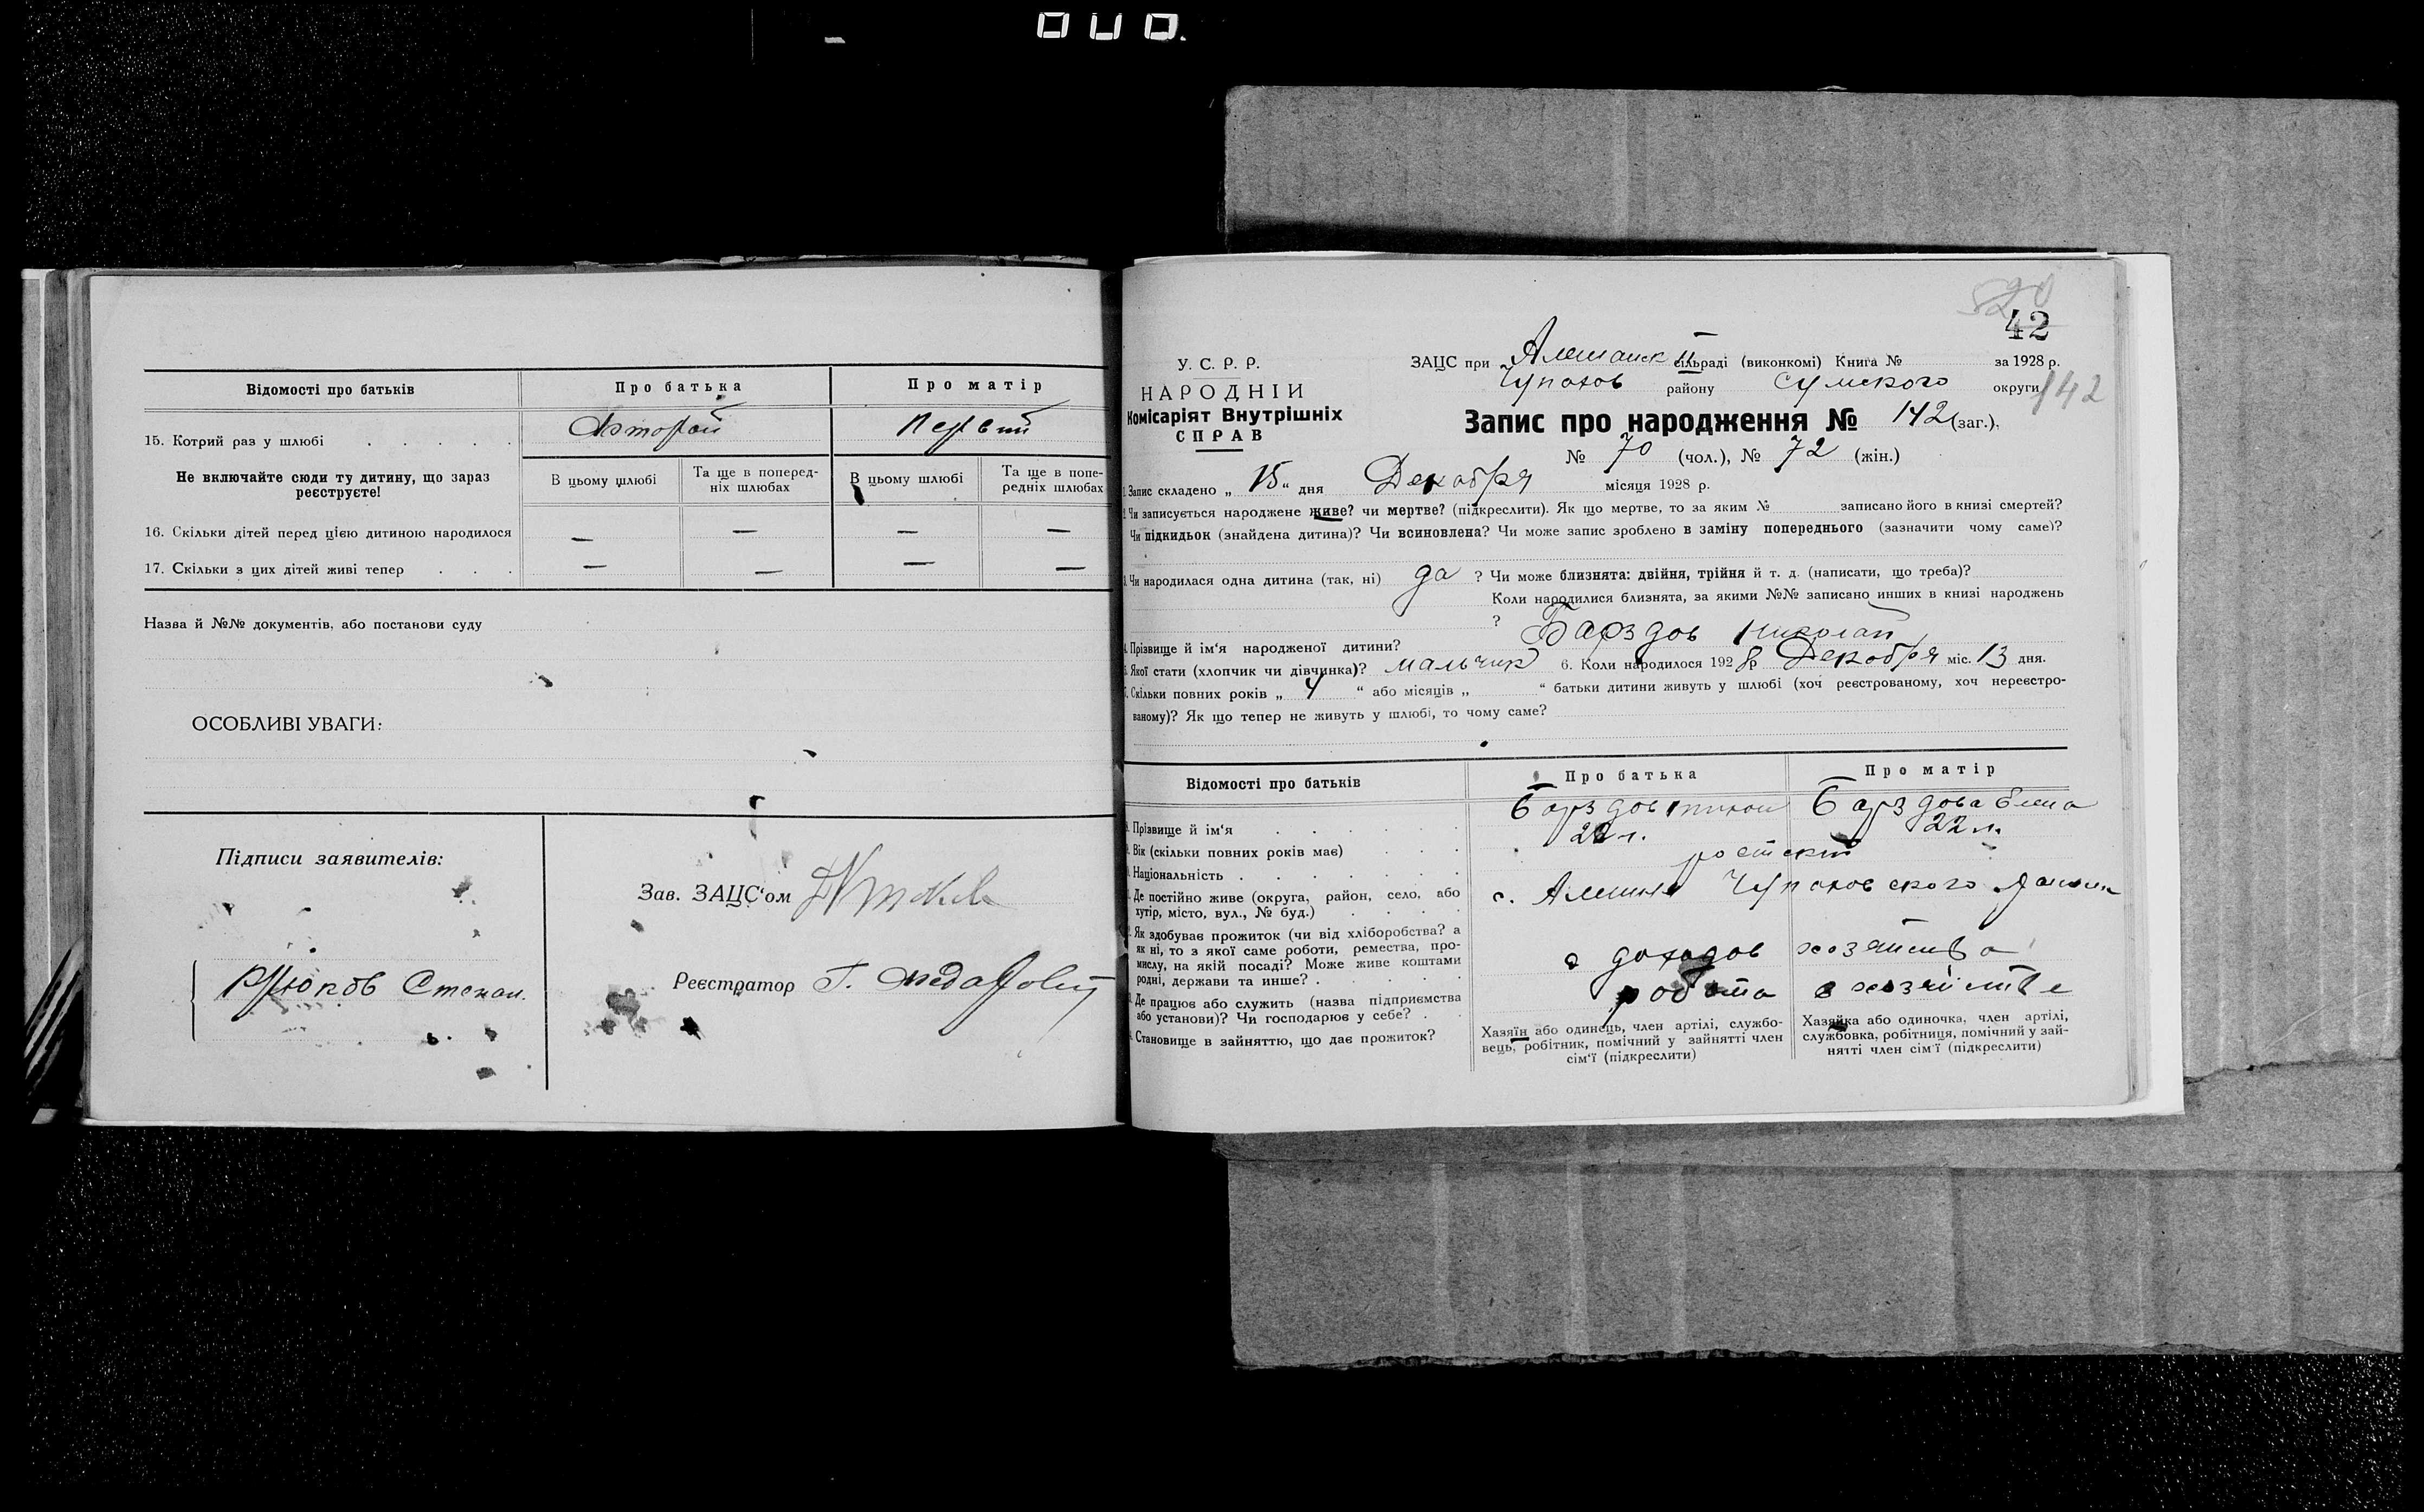 Відомості про батьків
Про батька
Про матір
15. Котрий раз у шлюбі
Второй
Первий
Не включайте сюди ту дитину, що зараз реєструєте!
В цьому шлюбі
Та ще в попередніх шлюбах
В цьому шлюбі
Та ще в попередніх шлюбах
16. Скільки дітей перед цією дитиною народилося — — — —
17. Скільки з цих дітей живі тепер — — — —
Назва й №№ документів, або постанови суду
ОСОБЛИВІ УВАГИ:
Підписи заявителів:
Степан.
Зав. ЗАЦС'ом
Реєстратор Г.
42
У. С. Р. Р.
НАРОДНІЙ
Комісаріят Внутрішніх
СПРАВ
ЗАЦС при Алешанск сільраді (виконкомі) Книга № за 1928 р.
Чупахов району Сумского округи 142
Запис про народження № 142 (заг.),
№ 70 (чол.), № 72 (жін.)
1. Запис складено „ 15 “ дня Декабря місяця 1928 р.
2. Чи записується народжене живе? чи мертве? (підкреслити). Як що мертве, то за яким № записано його в книзі смертей?
Чи підкидьок (знайдена дитина)? Чи всиновлена? Чи може запис зроблено в заміну попереднього (зазначити чому саме)?
3. Чи народилася одна дитина (так, ні) да ? Чи може близнята: двійня, трійня й т. д. (написати, що треба)?
Коли народилися близнята, за якими №№ записано инших в книзі народжень
?
4. Прізвище й ім'я народженої дитини? Барздов Николай
5. Якої стати (хлопчик чи дівчинка)? мальчик 6. Коли народилося 1928 р. Декабря міс. 13 дня.
7. Скільки повних років „ 4 “ або місяців „ “ батьки дитини живуть у шлюбі (хоч реєстрованому, хоч нереєстрованому)? Як що тепер не живуть у шлюбі, то чому саме?
Відомості про батьків
Про батька
Про матір
8. Прізвище й ім'я
Барздов
Барздова Елена
9. Вік (скільки повних років має)
22 л.
Національність
Де постійно живе (округа, район, село, або
хутір, місто, вул., № буд.)
с. Алешня Чупаховского
Як здобуває прожиток (чи від хліборобства? а
як ні, то з якої саме роботи, ремества, про-
мислу, на якій посаді? Може живе коштами
родні, держави та инше?
с доходов хозяйства
Де працює або служить (назва підприємства
або установи)? Чи господарює у себе?
работа в хозяйстве
Становище в зайняттю, що дає прожиток?
Хазяїн або одинець, член артілі, службо-
вець, робітник, помічний у зайнятті член
сім'ї (підкреслити)
Хазяйка або одиночка, член артілі,
службовка, робітниця, помічний у зай-
нятті член сім'ї (підкреслити)